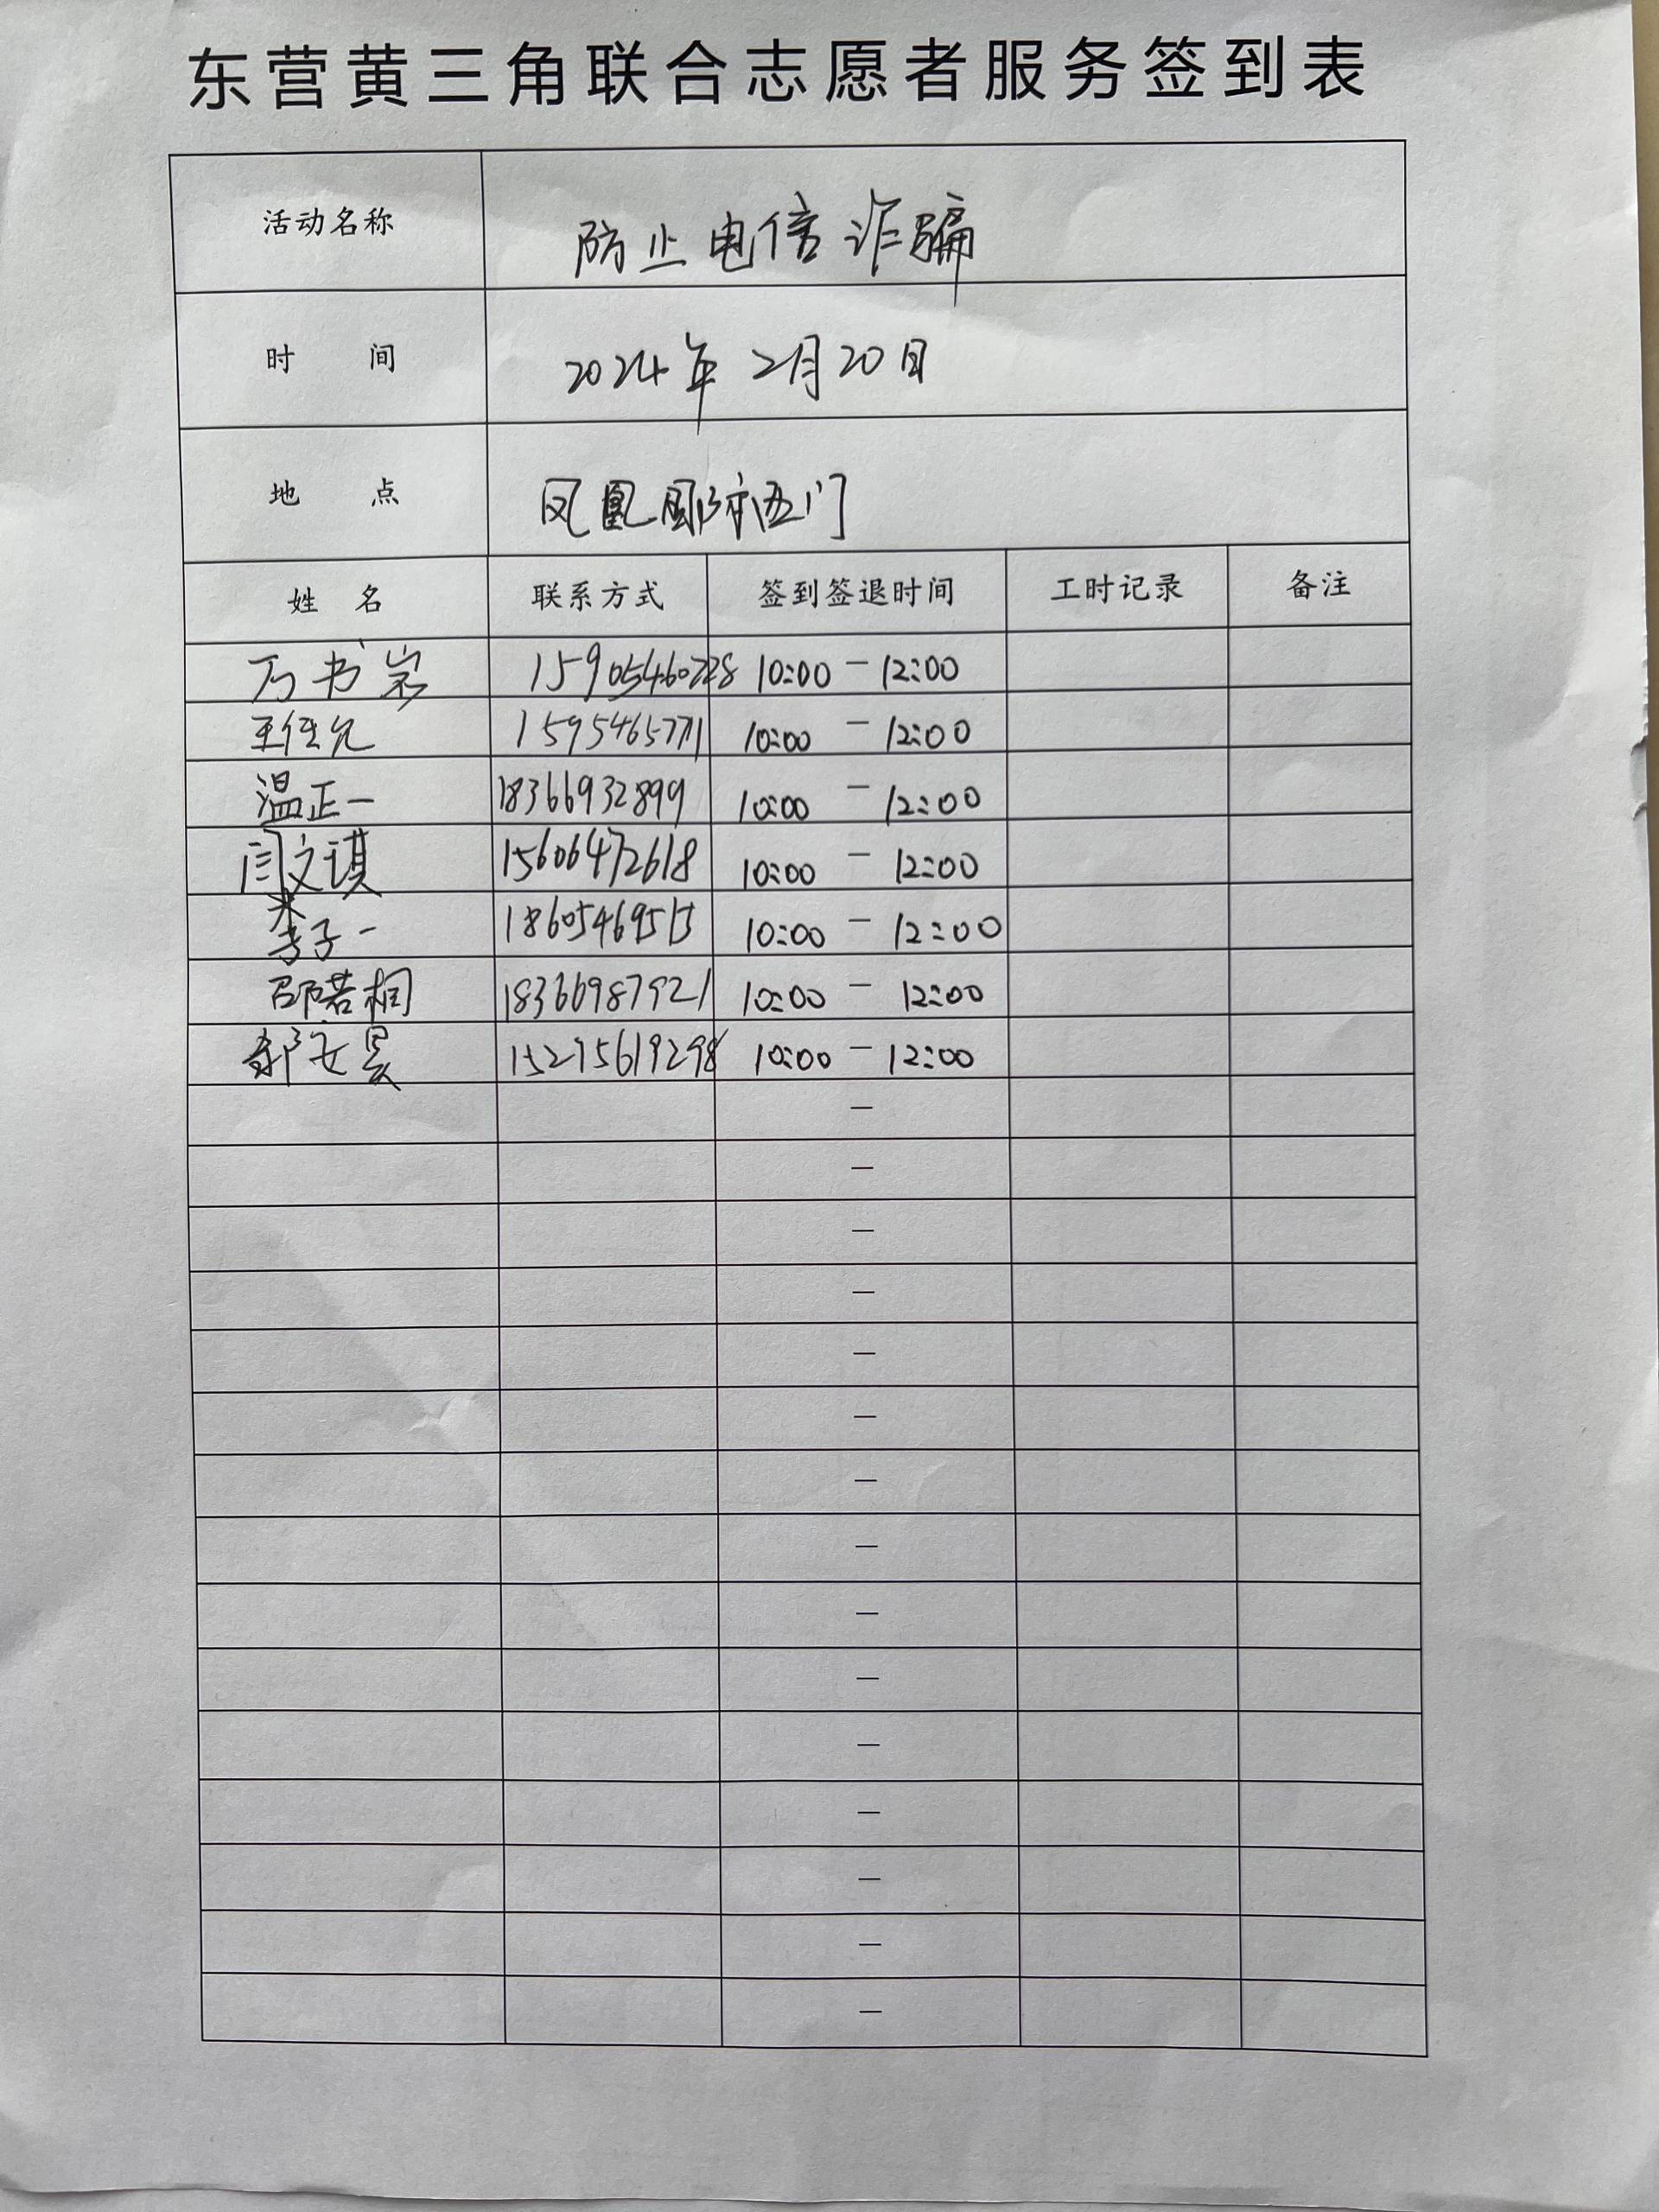 东营黄三角联合志愿者服务签到表
活动名称 防止电信诈骗
时 间 2024年2月20日
地 点 凤凰国际西门
姓 名 联系方式 签到签退时间 工时记录 备注
万书岽 15905460728 10:00 — 12:00
王佳允 1595465771 10:00 — 12:00
温正一 18366932899 10:00 — 12:00
闫文琪 15606472618 10:00 — 12:00
李子一 18605469515 10:00 — 12:00
邵若桐 18366987921 10:00 — 12:00
郝文昊 15275619298 10:00 — 12:00
—
—
—
—
—
—
—
—
—
—
—
—
—
—
—